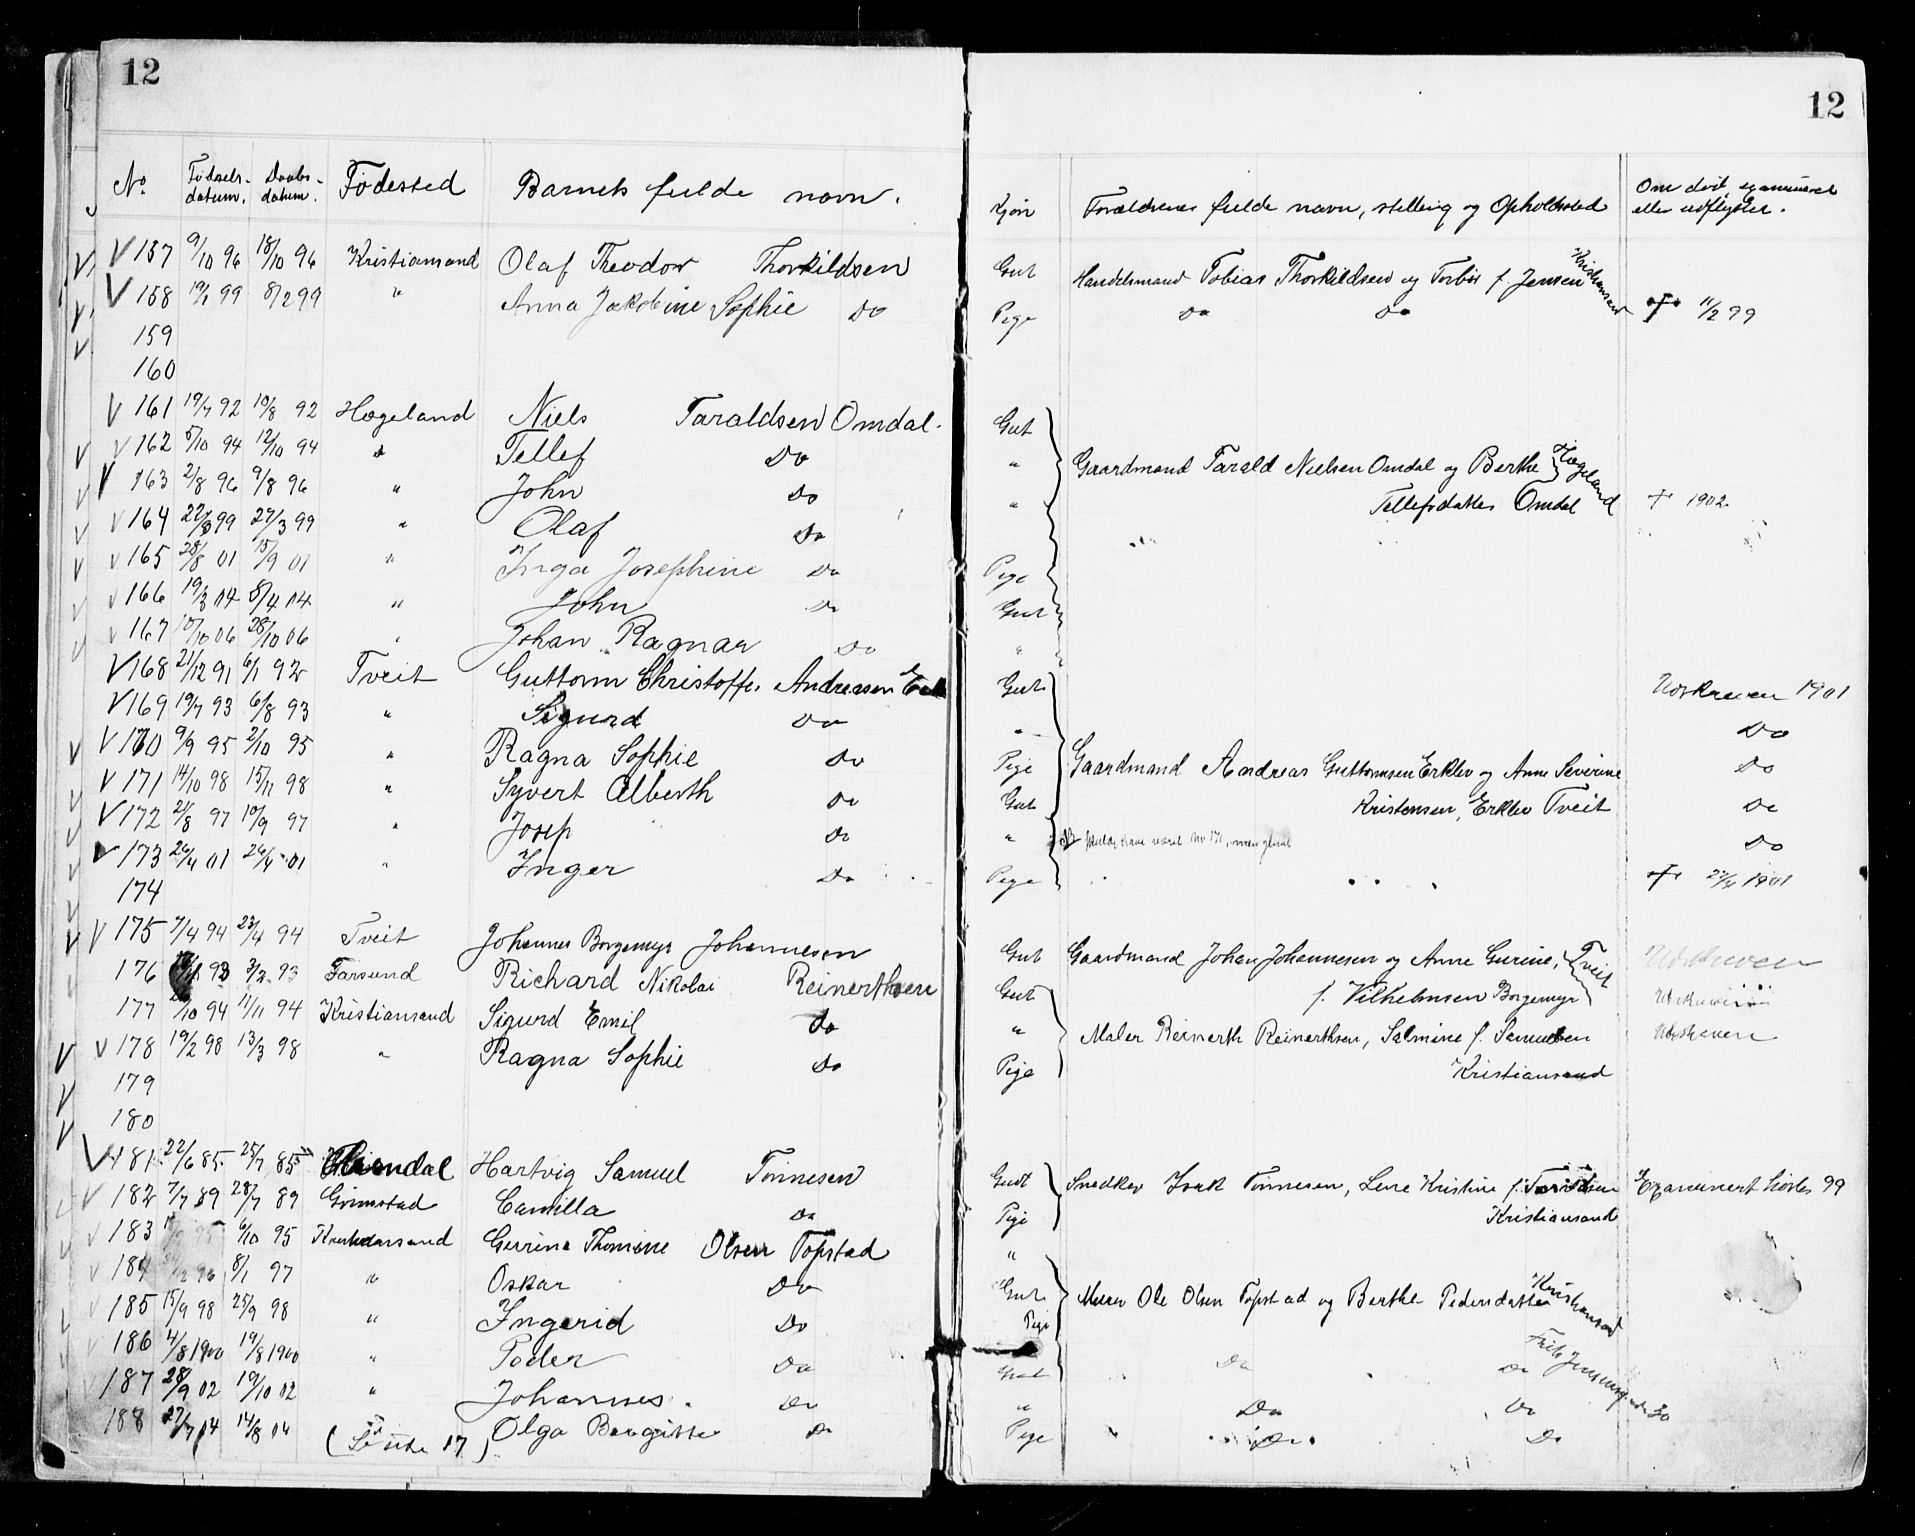 12
No. Fødsels-datum. Daabs-datum. Fødested Barnets fulde navn.
157 9/10 96 18/10 96 Kristiansand Olaf Theodor Thorkildsen
158 19/1 99 8/2 99 " Anna Jakobine Sophie Do
159
160
161 19/7 92 10/8 92 Hægeland Niels Taraldsen Omdal.
162 5/10 94 12/10 94 " Tellef Do
163 2/8 96 9/8 96 " John Do
164 22/3 99 27/3 99 " Olaf Do
165 28/8 01 15/9 01 " Inga Josephine Do
166 19/3 04 8/4 04 " John Do
167 10/10 06 28/10 06 " Johan Ragnar Do
168 21/12 91 6/1 92 Tveit Guttorm Christoffer Andreasen
169 19/7 93 6/8 93 " Sigurd Do
170 9/9 95 2/10 95 " Ragna Sophie Do
171 14/10 98 15/11 98 " Syvert Alberth Do
172 21/8 97 10/9 97 " Josep Do
173 26/4 01 26/4 01 " Inger Do
174
175 7/4 94 23/4 94 Tveit Johannes Borgemyr Johannesen
176 93 3/2 93 Farsund Richard Nikolai Reinerthsen
177 /10 94 11/11 94 Kristiansand Sigurd Emil Do
178 19/2 98 13/3 98 " Ragna Sophie Do
179
180
181 22/6 85 25/7 85 Hartvig Samuel Tønnesen
182 7/7 89 28/7 89 Grimstad Camilla Do
183 95 6/10 95 Kristiansand Gurine Thomine Olsen Topstad
184 96 8/1 97 " Oskar Do
185 15/9 98 25/9 98 " Ingerid Do
186 4/8 1900 19/8 1900 " Peder Do
187 28/9 02 19/10 02 " Johannes Do
188 27/7 04 14/8 04 " Olga Bergitte Do
(Se side 17)
12
Kjøn Forældrenes fulde navn, stilling og Opholdssted Om død, examineret eller udflyttet.
Gut Handelsmand Tobias Thorkildsen og Torbør f. Jensen Kristiansand
Pige Do Do † 11/2 99
Gut
" Gaardmand Tarald Nielsen Omdal og Berthe Hægeland
" Tellefsdatter Omdal † 1902
Pige
Gut
"
Gut Udskreven 1901
" Do
Pige Gaardmand Andreas Guttormsen Erklev og Anne Severine Do
Gut Kristensen, Erklev Tveit Do
" NB skulde have været No 171, men glemt Do
Pige † 27/4 1901
Gut Gaardmand Johan Johannesen og Anne Gurine, Tveit Udskreven
Gut f. Vilhelmsen Borgemyr Udskreven
" Maler Reinerth Reinerthsen, Salmine f. Samuelsen Udskreven
Pige Kristiansand
Gut Snedker Isak Tønnesen, Lene Kristine f. Examinert 99
Pige Kristiansand
"
Gut Murer Ole Olsen Topstad og Berthe Pedersdatter Kristiansand
Pige
Gut Do Do
" Do Do 30
Pige Do Do